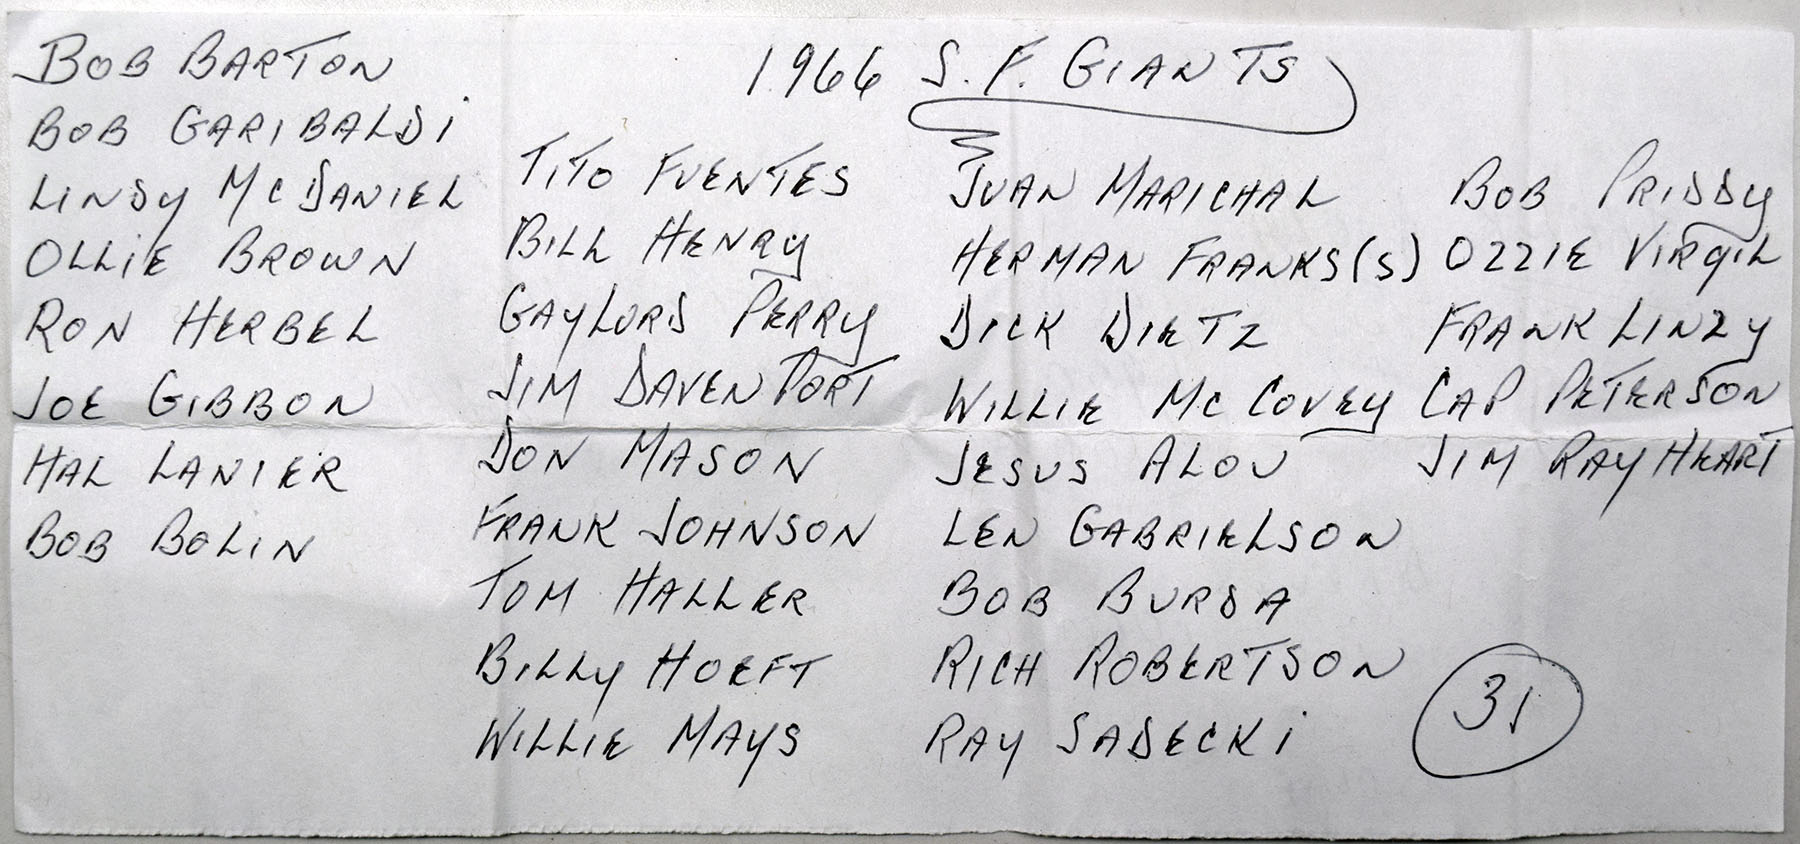 1966 S.F. GIANTS
BOB BARTON
BOB GARIBALDI
LINDY McDANIEL
OLLIE BROWN
RON HERBEL
JOE GIBBON
HAL LANIER
BOB BOLIN
TITO FUENTES
BILL HENRY
GAYLORD PERRY
JIM DAVENPORT
DON MASON
FRANK JOHNSON
TOM HALLER
BILLY HOEFT
WILLIE MAYS
JUAN MARICHAL
HERMAN FRANKS(S)
DICK DIETZ
WILLIE McCOVEY
JESUS ALOU
LEN GABRIELSON
BOB BURDA
RICH ROBERTSON
RAY SADECKI
BOB PRIDDY
OZZIE VIRGIL
FRANK LINZY
CAP PETERSON
JIM RAY HEART
31